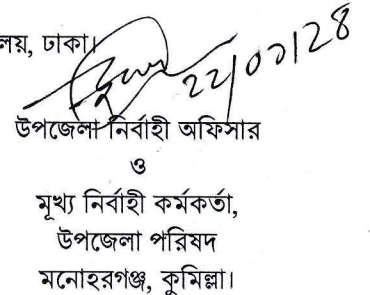 লয়, ঢাকা।
উপজেলা নির্বাহী অফিসার
ও
মূখ্য নির্বাহী কর্মকর্তা,
উপজেলা পরিষদ
মনোহরগঞ্জ, কুমিল্লা।